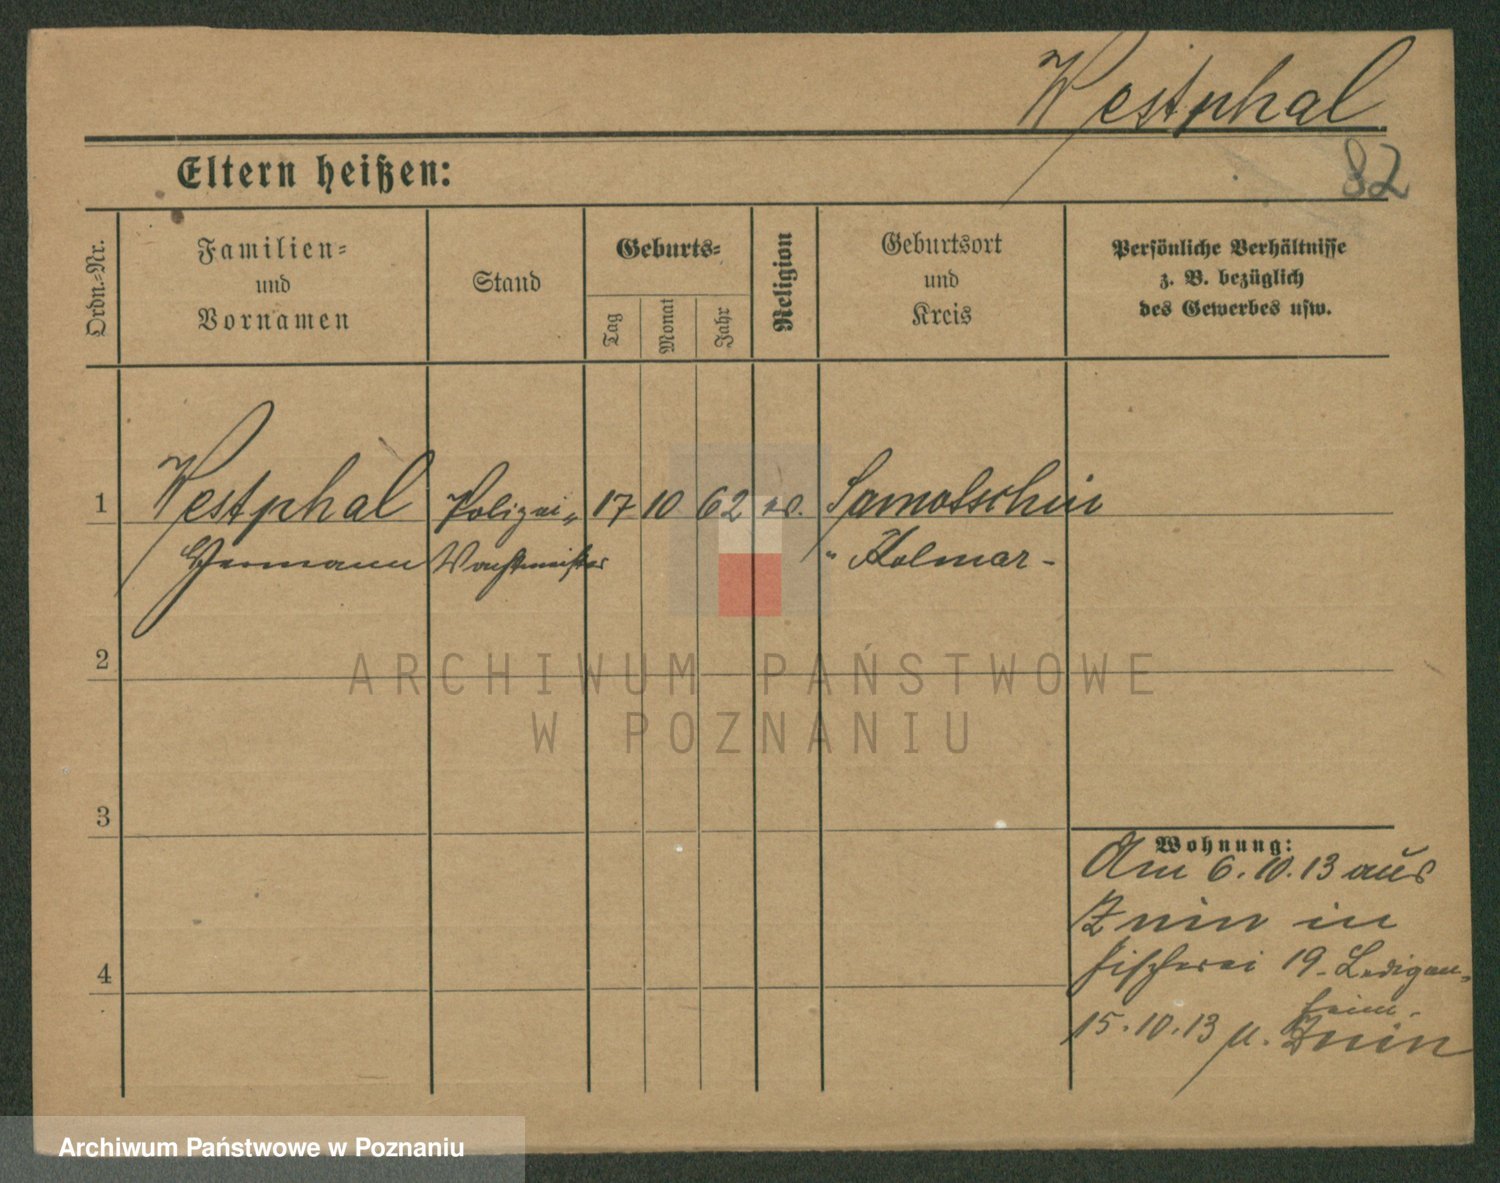 Westphal
82
Eltern heißen:
Ordn.-Nr.
Familien-
und
Vornamen
Stand
Geburts-
Tag
Monat
Jahr
Religion
Geburtsort
und
Kreis
Persönliche Verhältnisse
z. B. bezüglich
des Gewerbes usw.
1 Westphal Polizei- 17 10 62 ev. Samotschin
Hermann Wachtmeister " Kolmar -
2
3
4
Wohnung:
Am 6.10.13 aus
Znin in
Fischerei 19. Ledigen-
heim.
15.10.13 n. Znin
ARCHIWUM PAŃSTWOWE
W POZNANIU
Archiwum Państwowe w Poznaniu